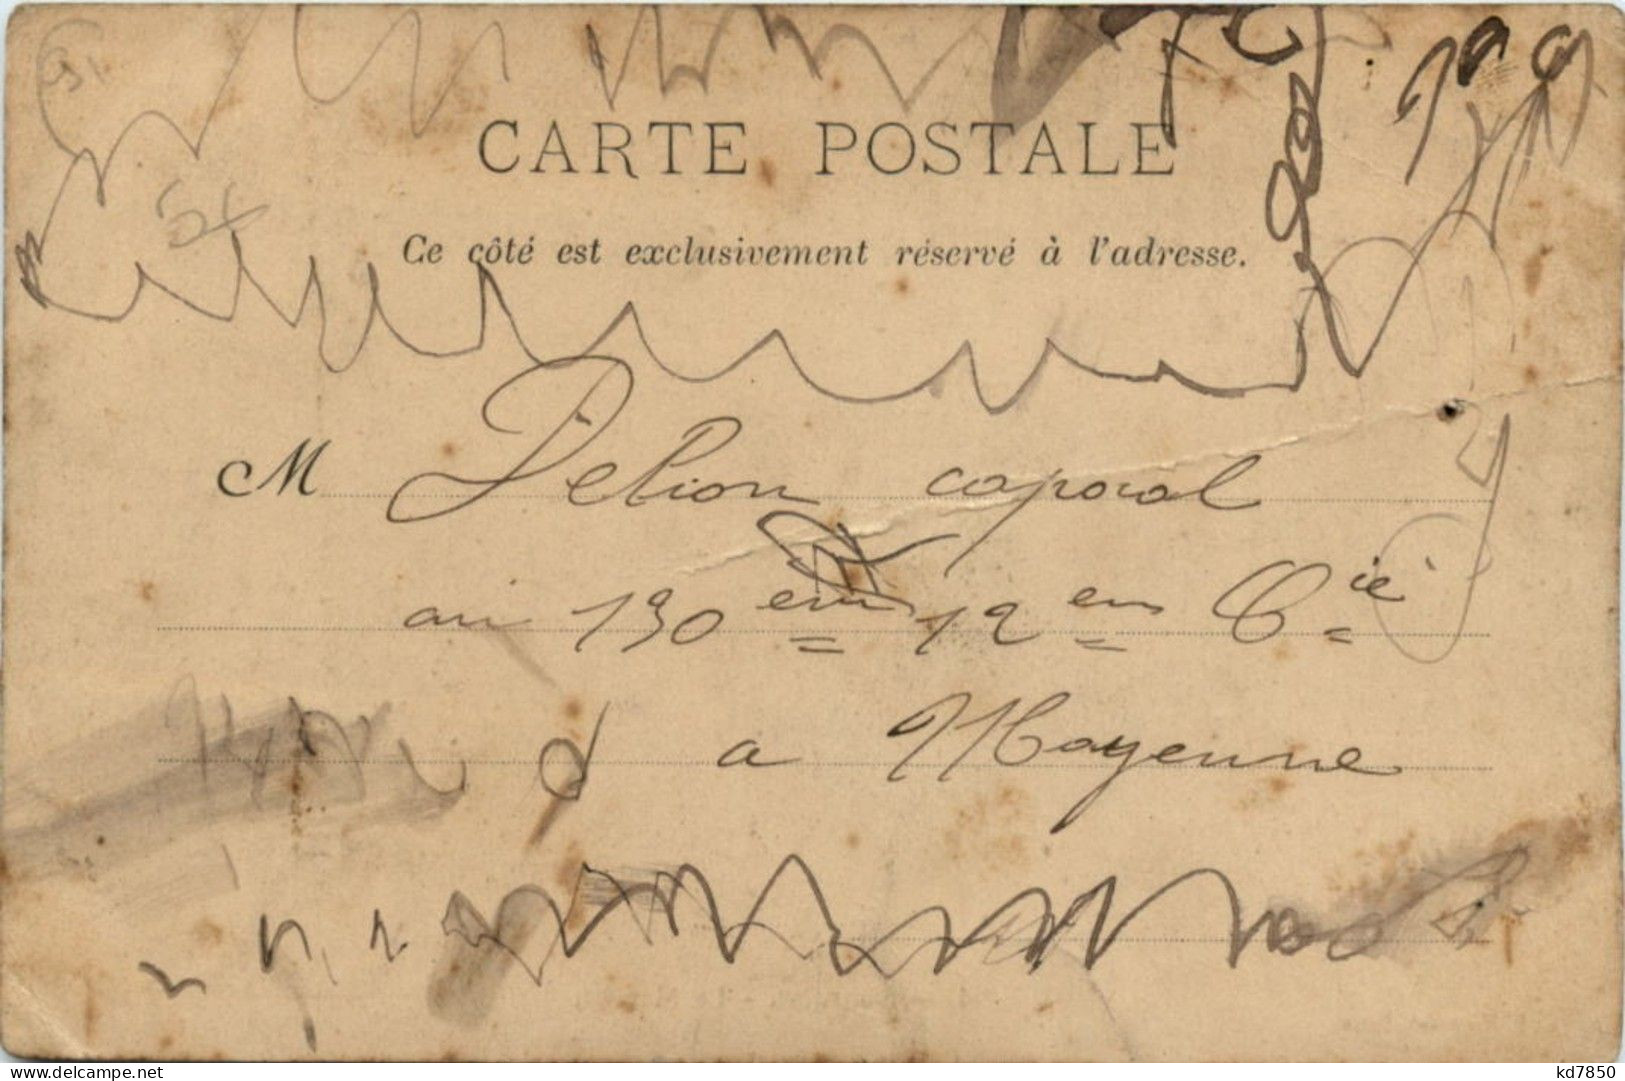 CARTE POSTALE
Ce côté est exclusivement réservé à l'adresse.
M Delion caporal
au 130em 12em Cie
a Mayenne
kd7850